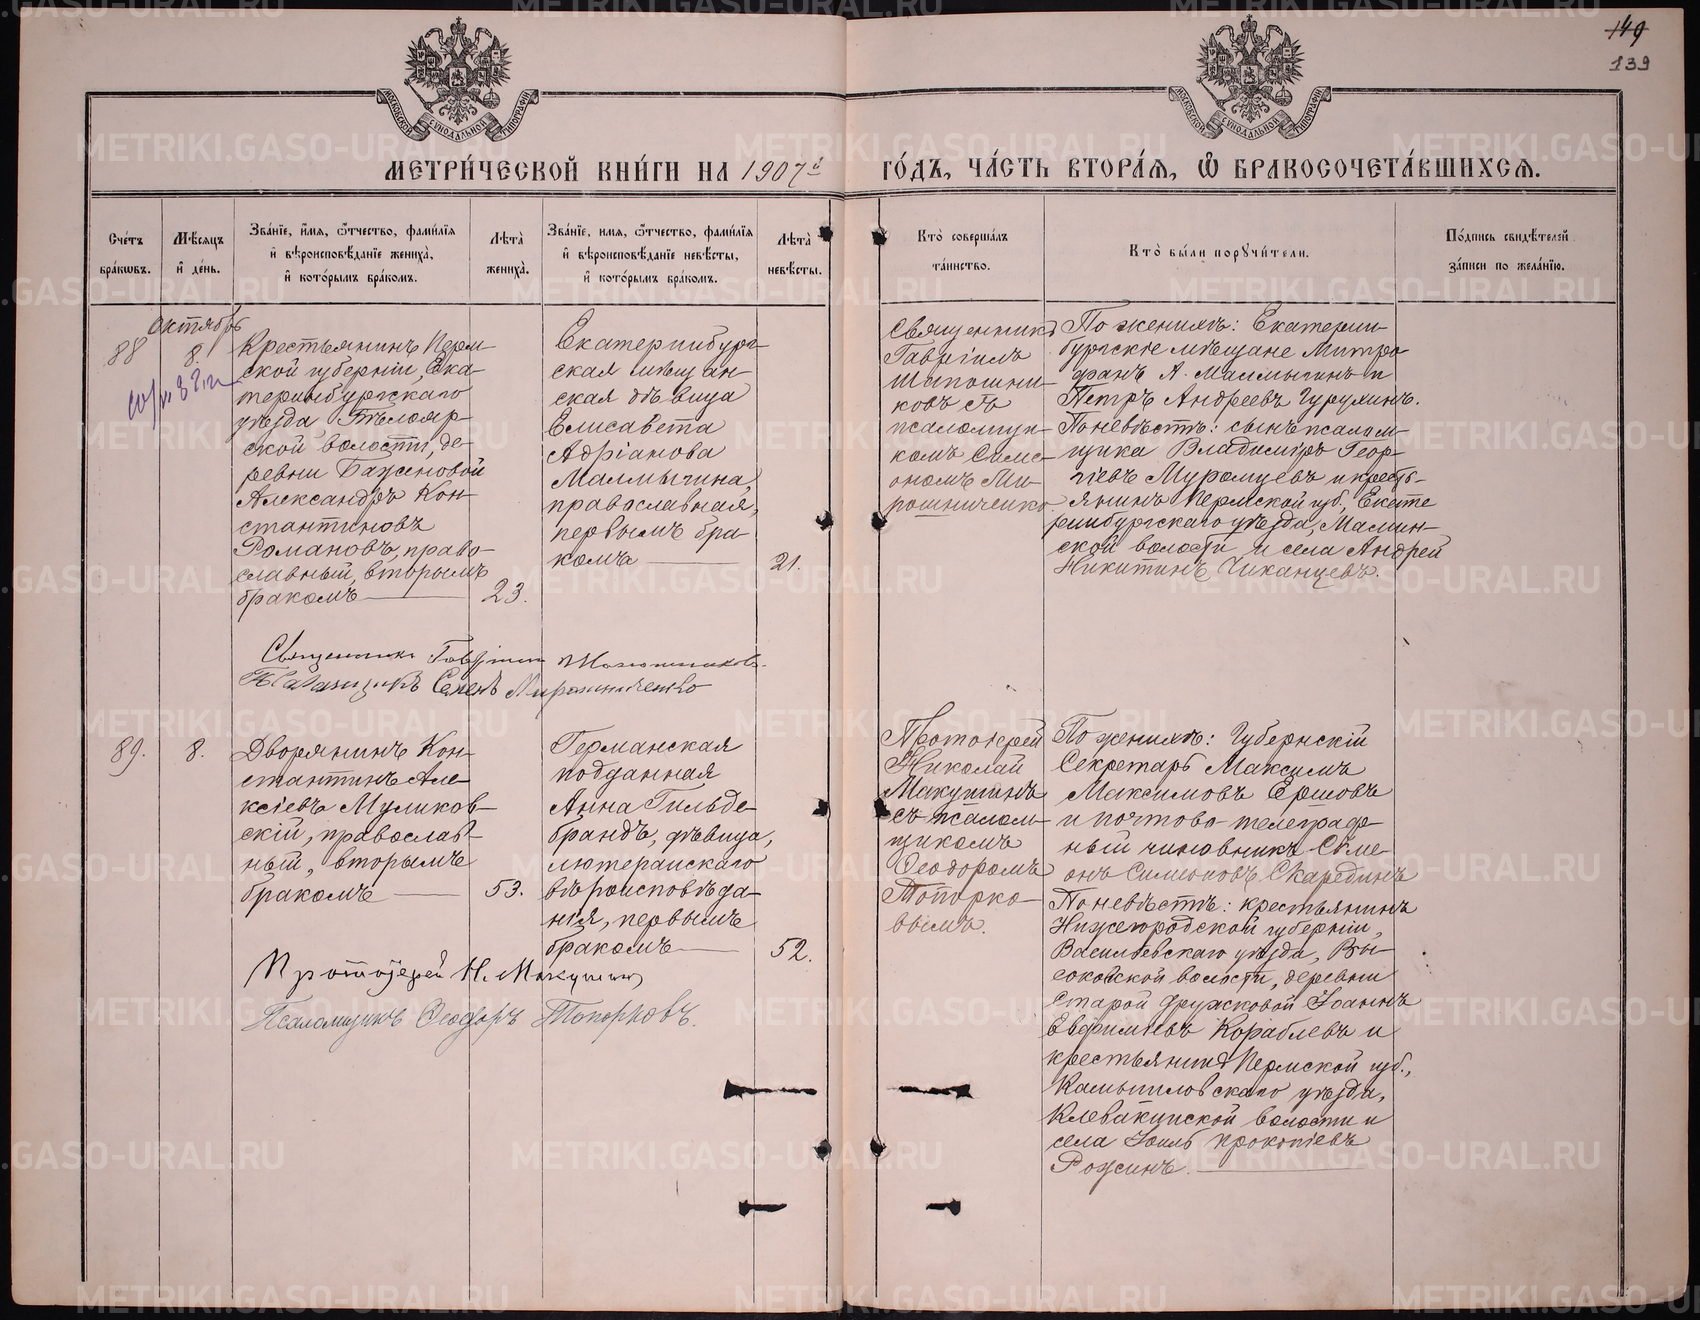 149
139
МЕТРИ́ЧЕСКОЙ КНИ́ГИ НА 1907й ГО́ДЪ, ЧА́СТЬ ВТОРА́Я, Ѽ БРАКОСОЧЕТА́ВШИХСЯ.
Сче́тъ бра́кѡвъ.
Мѣ́сяцъ и҆ де́нь.
Зва́нїе, и҆́мя, ѻ҆́тчество, фами́лїя и҆ вѣроисповѣ́данїе жениха̀, и҆ кото́рымъ бра́комъ.
Лѣ́та жениха̀.
Зва́нїе, имя, ѻ҆́тчество, фами́лїя и҆ вѣроисповѣ́данїе невѣ́сты, и҆ кото́рымъ бра́комъ.
Лѣ́та невѣ́сты.
Кто̀ соверша́лъ та́инство.
Кто̀ бы́ли порꙋчи́тели.
По́дпись свидѣ́телей за́писи по жела́нїю.
Октябрь
88
8.
Крестьянинъ Перм-
ской губерніи, Ека-
теринбургскаго
уѣзда Бѣлояр-
ской волости, де-
ревни Баженовой
Александръ Кон-
стантиновъ
Романовъ, право-
славный, вторымъ
бракомъ
23.
Екатеринбург-
ская мѣщан-
ская дѣвица
Елисавета
Адріанова
Малмыгина,
православная,
первымъ бра-
комъ
21.
Священникъ
Гавріилъ
Шапошни-
ковъ съ
псаломщи-
комъ Симе-
ономъ Ми-
рошниченко
По женихѣ: Екатерин-
бургскіе мѣщане Митро-
фанъ А. Малмыгинъ и
Петръ Андреевъ Чурулинъ.
По невѣстѣ: сынъ псалом-
щика Владиміръ Геор-
гіевъ Муромцевъ и кресть-
янинъ Пермской губ., Екате
ринбургскаго уѣзда, Мамин-
ской волости и села Андрей
Никитинъ Чиканцевъ.
Священникъ Гавріилъ Шапошниковъ.
Псаломщикъ Семенъ Мирошниченко
89.
8.
Дворянинъ Кон-
стантинъ Але-
ксіевъ Муликов-
скій, православ-
ный, вторымъ
бракомъ
53.
Германская
подданная
Анна Гильде-
брандъ, дѣвица,
лютеранскаго
вѣроисповѣда-
нія, первымъ
бракомъ
52.
Протоіерей
Николай
Макушинъ
съ псалом-
щикомъ
Ѳеодоромъ
Топорко-
вымъ.
По женихѣ: Губернскій
Секретарь Максимъ
Максимовъ Ершовъ
и почтово-телеграф-
ный чиновникъ Симе-
онъ Симеоновъ Скарединъ
По невѣстѣ: крестьянинъ
Нижегородской губерніи,
Васильевскаго уѣзда, Вы-
соковской волости, деревни
Старой Дружковой Іоаннъ
Евфиміевъ Кораблевъ и
крестьянинъ Пермской губ.,
Камышловскаго уѣзда,
Клевакинской волости и
села Іоиль Прокопіевъ
Рожинъ.
Протоіерей Н. Макушинъ
Псаломщикъ Ѳеодоръ Топорковъ.